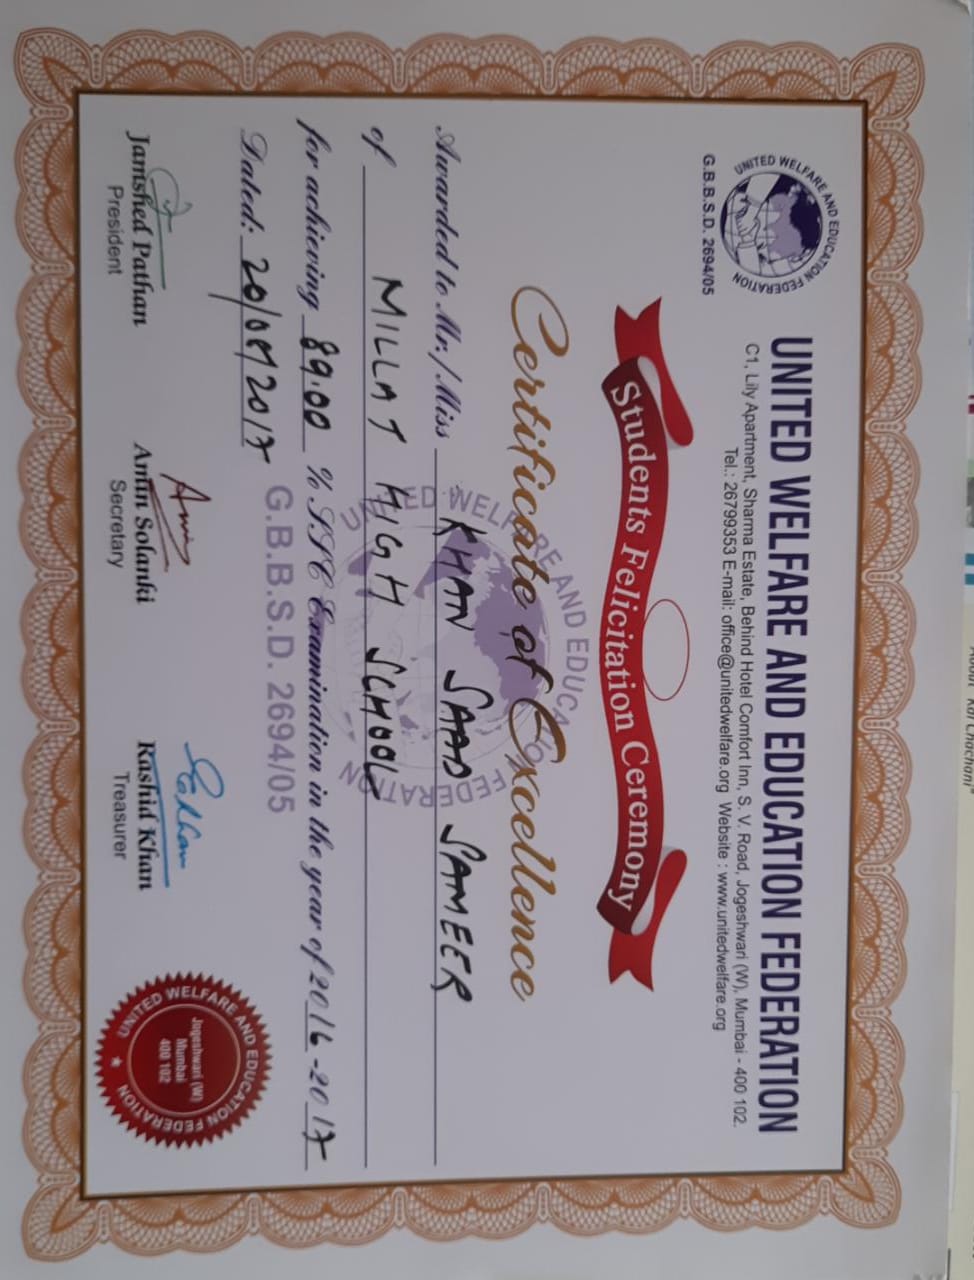 UNITED WELFARE AND EDUCATION FEDERATION
G.B.B.S.D. 2694/05
UNITED WELFARE AND EDUCATION FEDERATION
C1, Lily Apartment, Sharma Estate, Behind Hotel Comfort Inn, S. V. Road, Jogeshwari (W), Mumbai - 400 102.
Tel.: 26799353 E-mail: office@unitedwelfare.org Website : www.unitedwelfare.org
Students Felicitation Ceremony
Certificate of Excellence
Awarded to Mr./Miss KHAN SAAD SAMEER
of MILLAT HIGH SCHOOL
for achieving 89.00 % SSC Examination in the year of 2016-2017
Dated: 20/08/2017
G.B.B.S.D. 2694/05
Jamshed Pathan
President
Amin Solanki
Secretary
Rashid Khan
Treasurer
UNITED WELFARE AND EDUCATION FEDERATION
Jogeshwari (W)
Mumbai
400 102